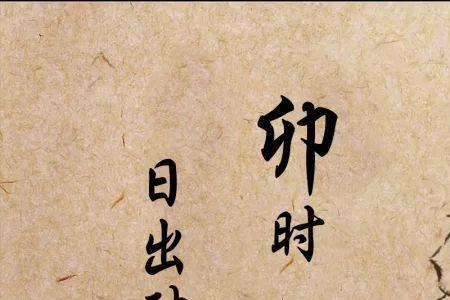 卯时
日出